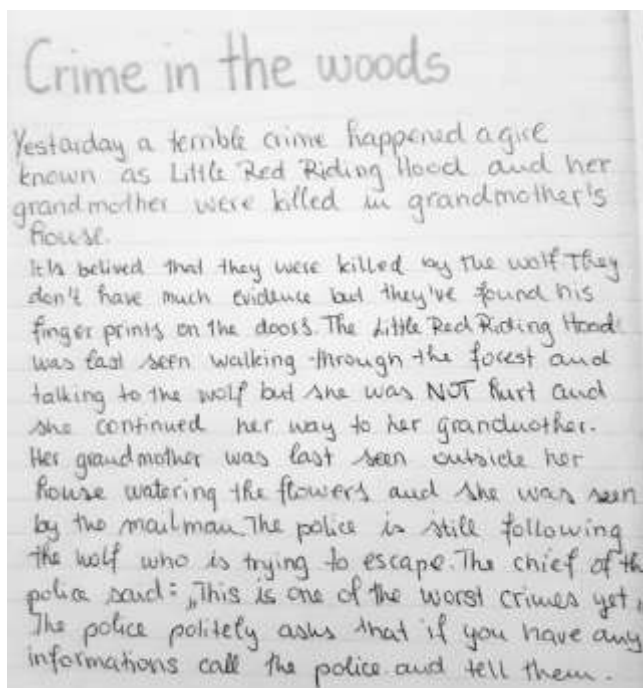 Crime in the woods
Yestarday a terrible crime happened a girl
known as Little Red Riding Hood and her
grandmother were killed in grandmother's
house.
It is belived that they were killed by the wolf They
don't have much evidence but they've found his
finger prints on the doors. The Little Red Riding Hood
was last seen walking through the forest and
talking to the wolf but she was NOT hurt and
she continued her way to her grandmother.
Her grandmother was last seen outside her
house watering the flowers and she was seen
by the mailman. The police is still following
the wolf who is trying to escape. The chief of th
police said: „This is one of the worst crimes yet.
The police politely asks that if you have any
informations call the police and tell them.